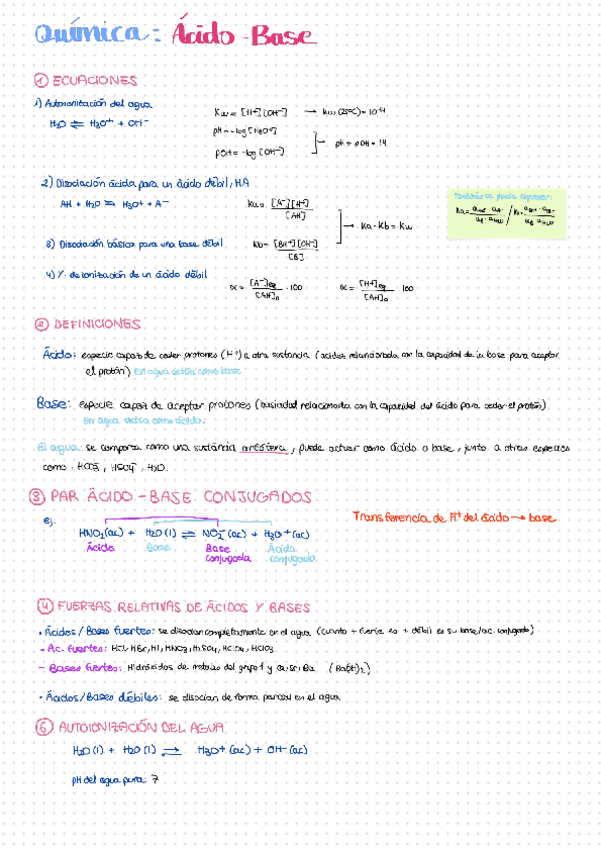 Química: Ácido-Base
1 ECUACIONES
1) Autoionización del agua
H2O ⇌ H3O+ + OH-
Kw = [H+][OH-] → Kw (25ºC) = 10-14
pH = -log [H3O+]
pOH = -log [OH-]
pH + pOH = 14
2) Disociación ácida para un ácido débil, HA
AH + H2O ⇌ H3O+ + A-
Ka = [A-][H+] / [AH]
Ka · Kb = Kw
También se puede expresar:
3) Disociación básica para una base débil
Kb = [BH+][OH-] / [B]
4) % de ionización de un ácido débil
α = [A-]eq / [AH]0 · 100
α = [H+]eq / [AH]0 · 100
2 DEFINICIONES
Ácido: especie capaz de ceder protones (H+) a otra sustancia (acidez relacionada con la capacidad de la base para aceptar
el protón) En agua actúa como base
Base: especie capaz de aceptar protones (basicidad relacionada con la capacidad del ácido para ceder el protón)
En agua actúa como ácido.
El agua se comporta como una sustancia anfótera, puede actuar como ácido o base, junto a otras especies
como, HCO3-, HSO4-, H2O.
3 PAR ÁCIDO-BASE CONJUGADOS
ej.
Transferencia de H+ del ácido → base
HNO2(ac) + H2O(l) ⇌ NO2-(ac) + H3O+(ac)
Ácido Base Base conjugada Ácido conjugado
4 FUERZAS RELATIVAS DE ÁCIDOS Y BASES
• Ácidos/Bases fuertes: se disocian completamente en el agua (cuanto + fuerte es + débil es su base/ac. conjugado)
- Ac. fuertes: HCl, HBr, HI, HNO3, H2SO4, HClO4, HClO3
- Bases fuertes: Hidróxidos de metales del grupo 1 y Ca, Sr, Ba
• Ácidos/Bases débiles: se disocian de forma parcial en el agua
5 AUTOIONIZACIÓN DEL AGUA
H2O(l) + H2O(l) ⇌ H3O+(ac) + OH-(ac)
pH del agua pura 7